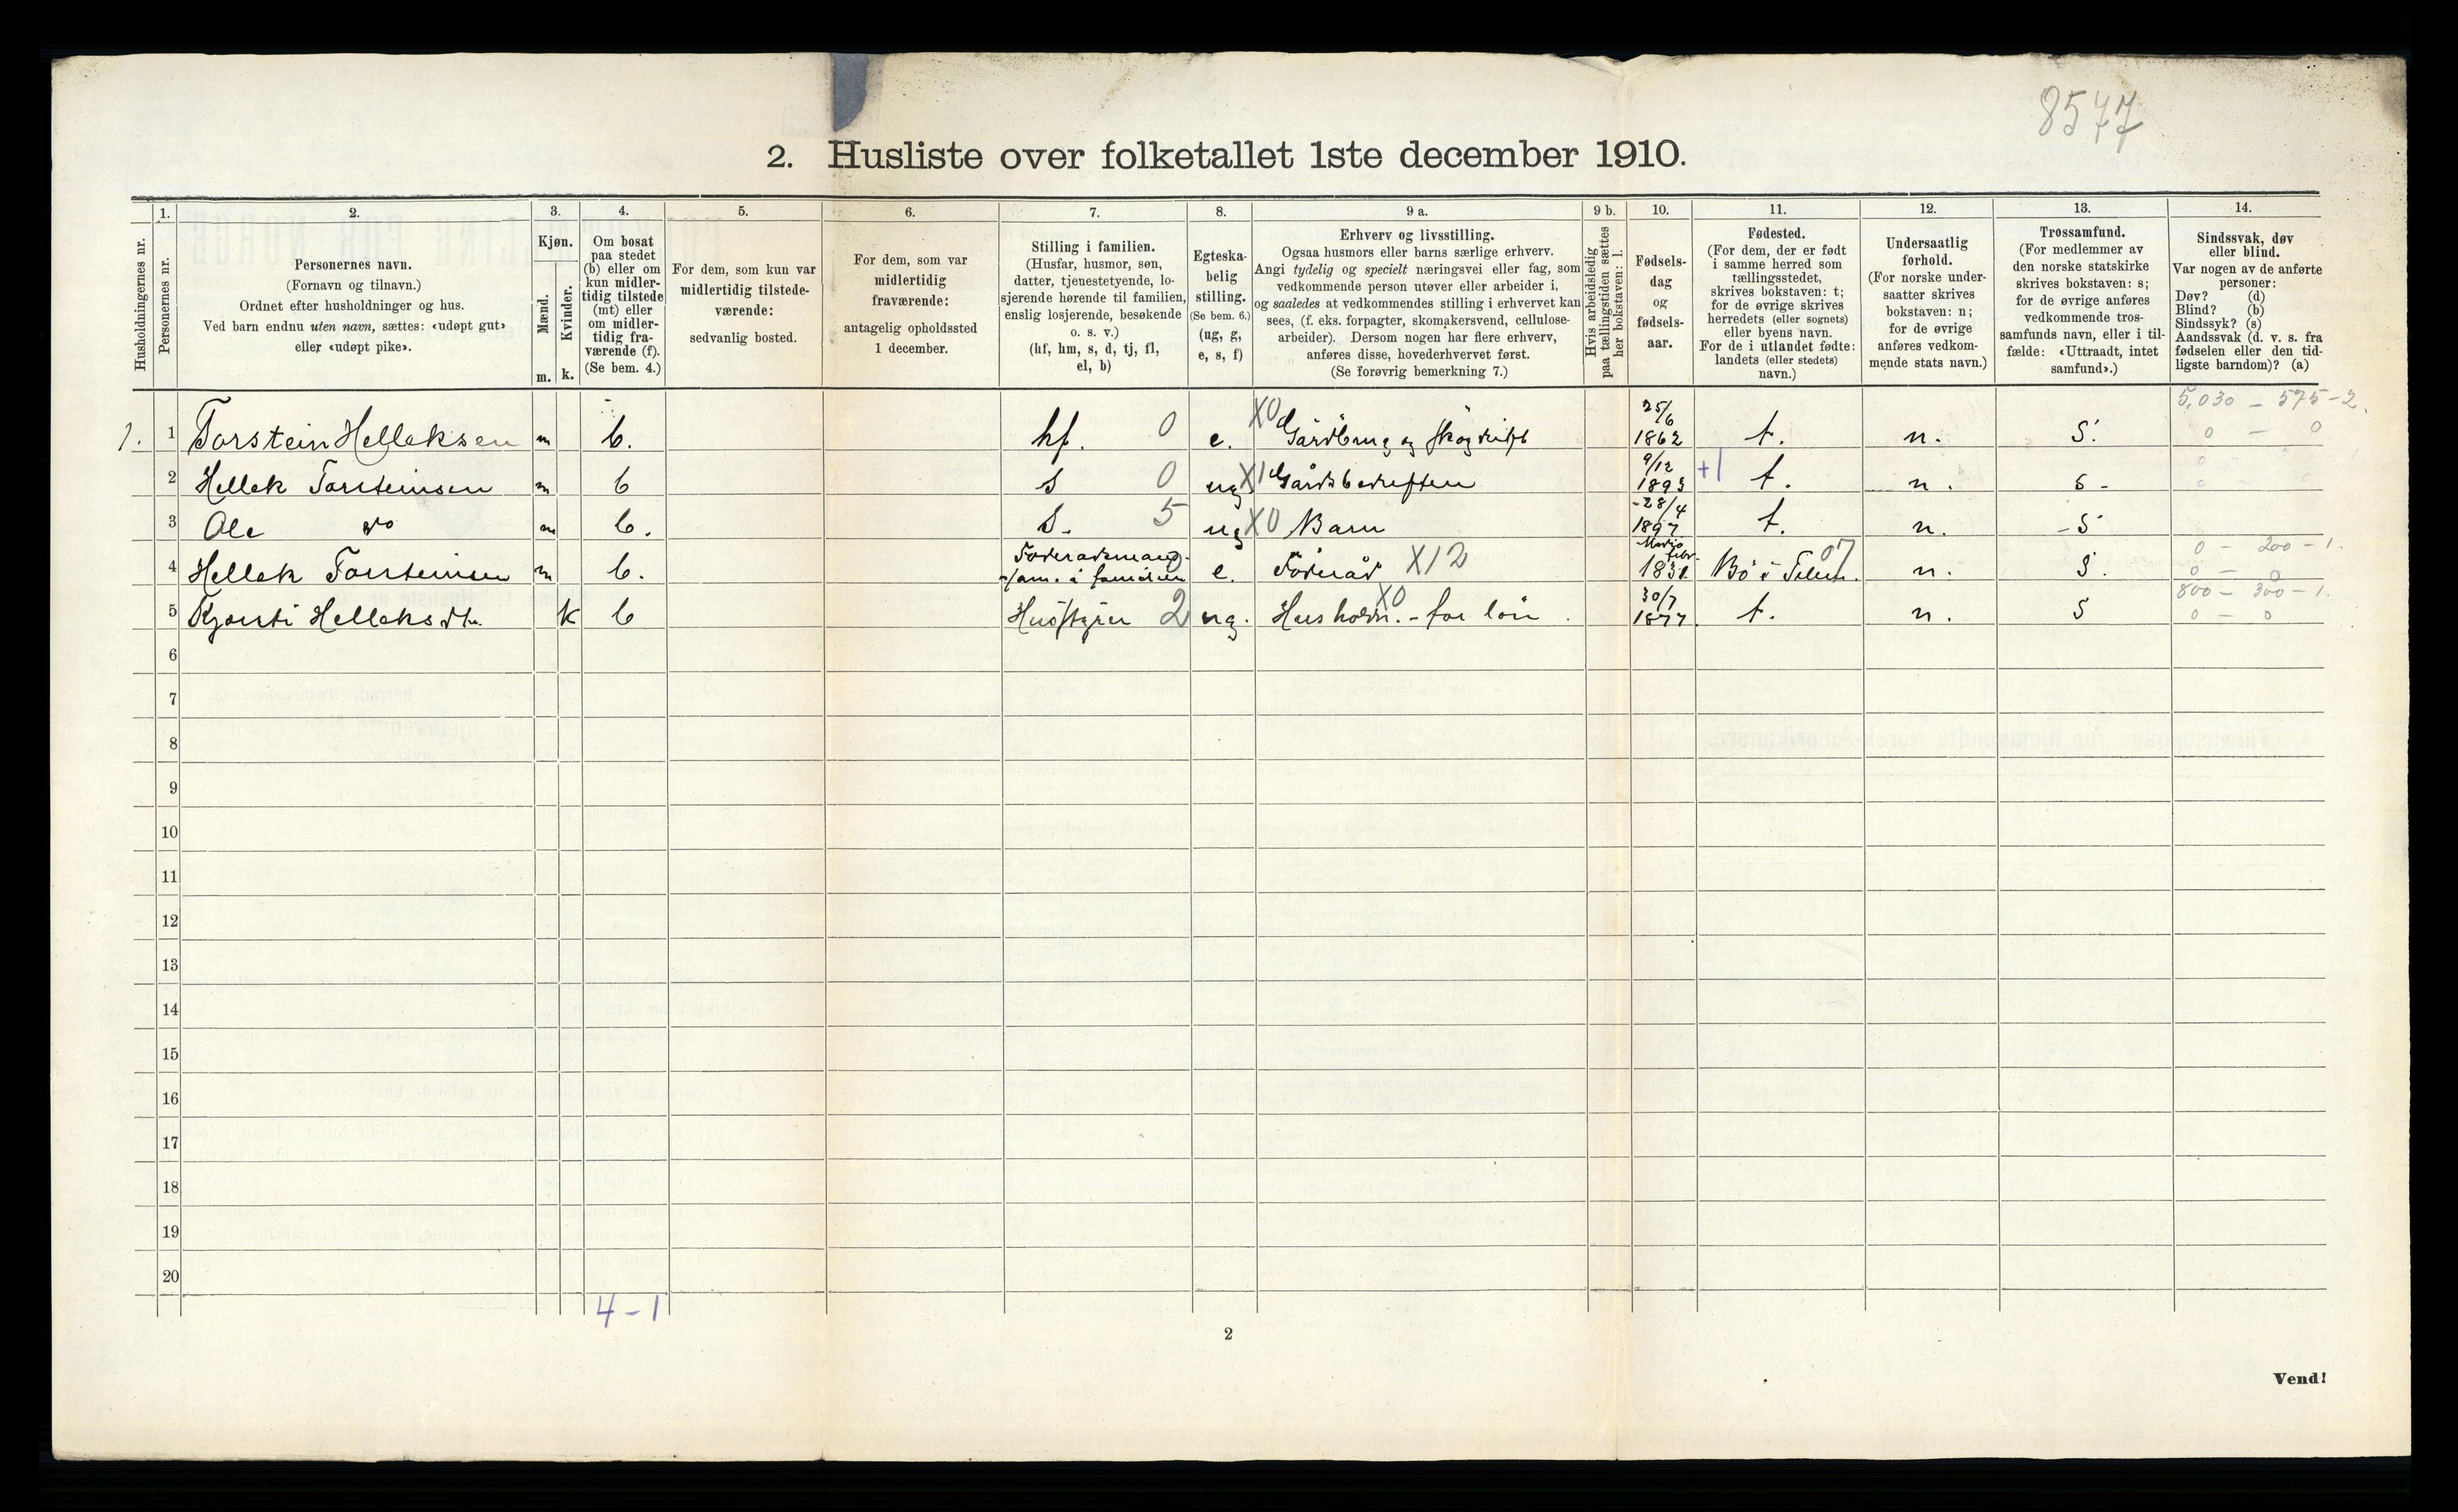 8577
2. Husliste over folketallet 1ste december 1910.
Husholdningernes nr.
1.
Personernes nr.
2.
Personernes navn.
(Fornavn og tilnavn.)
Ordnet efter husholdninger og hus.
Ved barn endnu uten navn, sættes: «udøpt gut»
eller «udøpt pike».
3.
Kjøn.
Mænd.
Kvinder.
m. k.
4.
Om bosat
paa stedet
(b) eller om
kun midler-
tidig tilstede
(mt) eller
om midler-
tidig fra-
værende (f).
(Se bem. 4.)
5.
For dem, som kun var
midlertidig tilstede-
værende:
sedvanlig bosted.
6.
For dem, som var
midlertidig
fraværende:
antagelig opholdssted
1 december.
7.
Stilling i familien.
(Husfar, husmor, søn,
datter, tjenestetyende, lo-
sjerende hørende til familien,
enslig losjerende, besøkende
o. s. v.)
(hf, hm, s, d, tj, fl,
el, b)
8.
Egteska-
belig
stilling.
(Se bem. 6.)
(ug, g,
e, s, f)
9 a.
Erhverv og livsstilling.
Ogsaa husmors eller barns særlige erhverv.
Angi tydelig og specielt næringsvei eller fag, som
vedkommende person utøver eller arbeider i,
og saaledes at vedkommendes stilling i erhvervet kan
sees, (f. eks. forpagter, skomakersvend, cellulose-
arbeider). Dersom nogen har flere erhverv,
anføres disse, hovederhvervet først.
(Se forøvrig bemerkning 7.)
9 b.
Hvis arbeidsledig
paa tællingstiden sættes
her bokstaven: l.
10.
Fødsels-
dag
og
fødsels-
aar.
11.
Fødested.
(For dem, der er født
i samme herred som
tællingsstedet,
skrives bokstaven: t;
for de øvrige skrives
herredets (eller sognets)
eller byens navn.
For de i utlandet fødte:
landets (eller stedets)
navn.)
12.
Undersaatlig
forhold.
(For norske under-
saatter skrives
bokstaven: n;
for de øvrige
anføres vedkom-
mende stats navn.)
13.
Trossamfund.
(For medlemmer av
den norske statskirke
skrives bokstaven: s;
for de øvrige anføres
vedkommende tros-
samfunds navn, eller i til-
fælde: «Uttraadt, intet
samfund».)
14.
Sindssvak, døv
eller blind.
Var nogen av de anførte
personer:
Døv? (d)
Blind? (b)
Sindssyk? (s)
Aandssvak (d. v. s. fra
fødselen eller den tid-
ligste barndom)? (a)
5,030 – 575 – 2.
1. 1 Torstein Helleksen m b. hf. 0 e. X0 Gårdbrug og skogdrift 25/6 1862 t. n. S. 0 – 0
2 Hellek Torsteinsen m b s 0 ug X1 Gårdsbedriften 9/12 1893 +1 t. n. s -
3 Ole do m b. s. 5 ug X0 Barn 28/4 1897 t. n. S
0 – 200 – 1.
4 Hellek Torsteinsen m b. e. Føderåd X12 1831 Bö i Telem. 07 n. S. 0 – 0
800 – 300 – 1.
5 Kjersti Helleksdtr. k b Husstyrer 2 ug. X0 Husholdn. - for løn 30/7 1877. t. n. S 0 – 0
6
7
8
9
10
11
12
13
14
15
16
17
18
19
20
4 – 1
2
Vend!